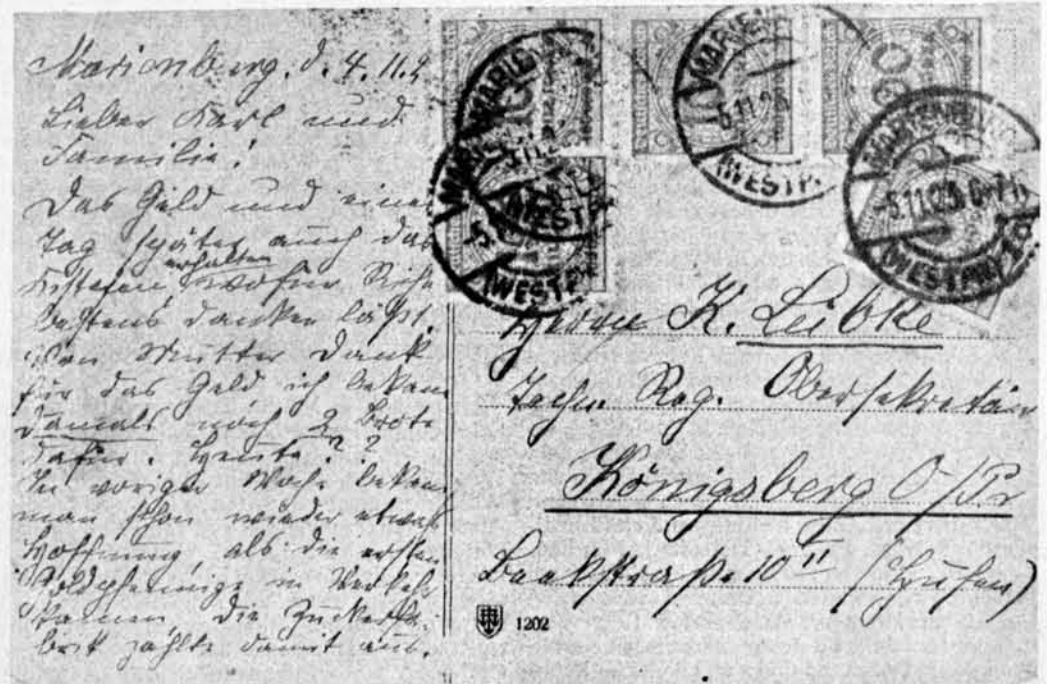 Marienburg. d. 4.11.2
Lieber Karl und
Familie!
Das Geld und einen
Tag später auch das
Kistchen erhalten wofür
bestens danken läßt.
Von Mutter Dank
für das Geld ich bekam
damals noch 2 Brote
dafür. Heute??
In voriger Woche bekam
man schon wieder etwas
Hoffnung als die ersten
Goldpfennige in Verkehr
kamen. Die Zuckerfa-
brik zahlte damit aus.
MARIENB
-5.11.23. 6-7N
(WESTPR)
MARIE
5.11.2
(WESTP.
WESTP
Herrn K. Lübke
Techn. Reg. Obersekretär
Königsberg O/Pr
Beekstraße 10 II (Hufen)
1202